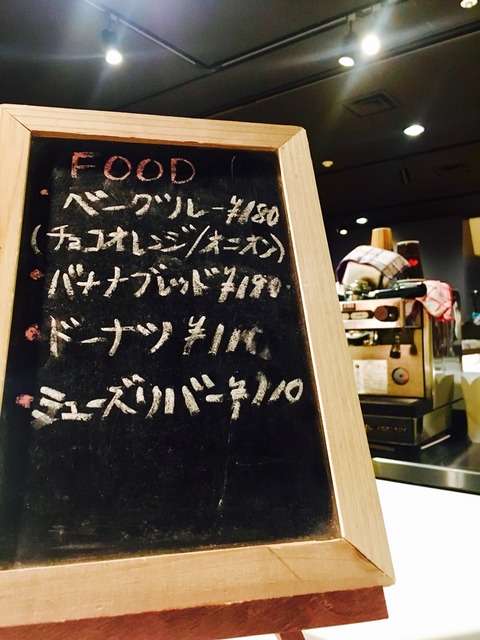 FOOD
ベーグル ¥180
(チョコオレンジ/オニオン)
バナナブレッド ¥180
ドーナツ
ミューズリバー ¥210